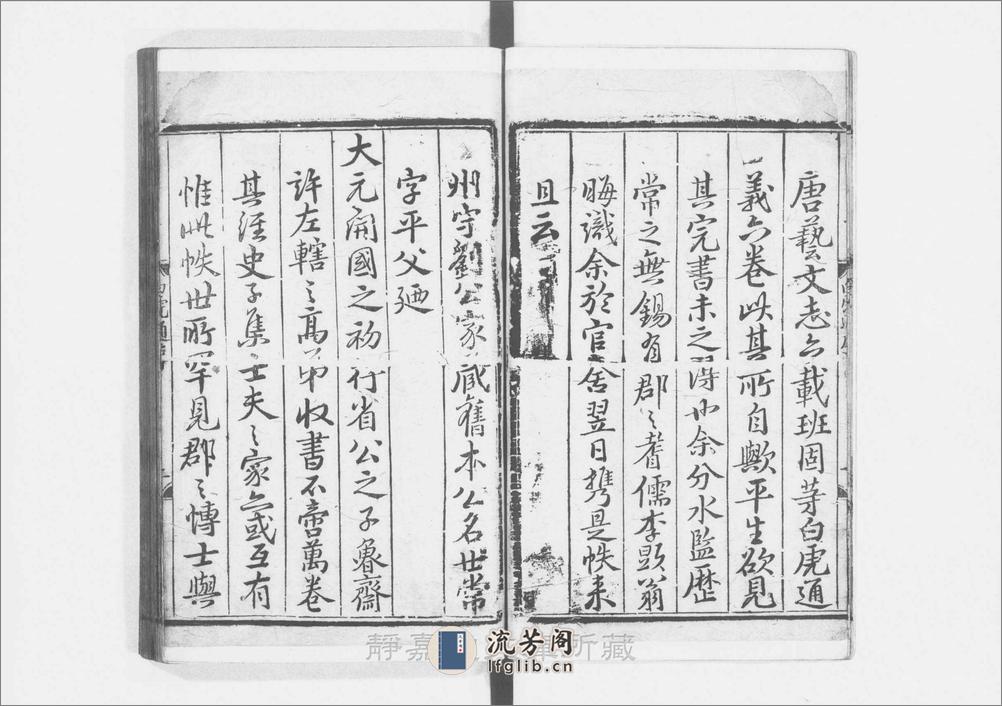 唐藝文志亦載班固等白虎通
義六卷此其所自歟平生欲見
其完書未之得也余分水監歷
常之無錫有郡之耆儒李顯翁
晦識余於官舍翌日攜是帙来
且云
州守劉公家藏舊本公名世常
字平父廼
大元開國之初行省公之子魯齋
許左轄之高弟收書不啻萬卷
其經史子集士夫之家亦或互有
惟此帙世所罕見郡之博士與
靜嘉 所藏
流芳阁
lfglib.cn